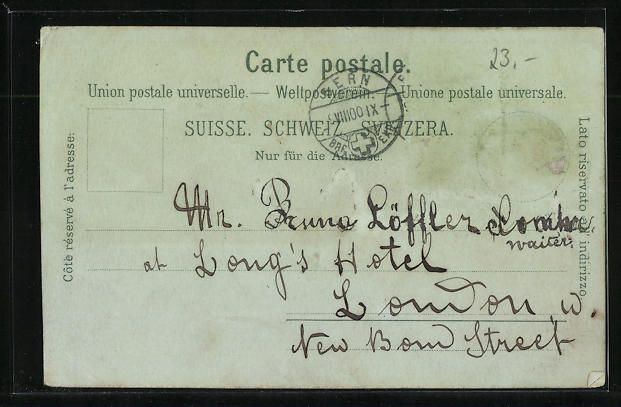 Carte postale.
23.-
Union postale universelle. — Weltpostverein. — Unione postale universale.
BERN
SUISSE. SCHWEIZ. SVIZZERA.
Nur für die Adresse.
Côté réservé à l'adresse.
Lato riservato all' indirizzo
Mr. Bruno Löffler
waiter.
at Long's Hotel
London, W.
New Bond Street